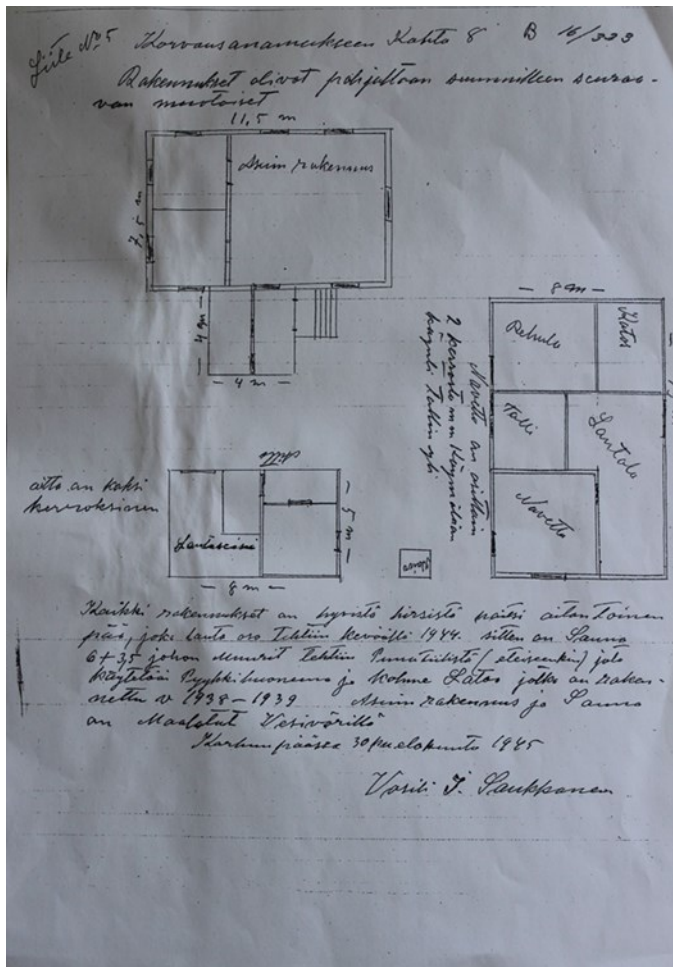 Liite No 5 Korvausanomukseen Kohta 8 B 16/333
Rakennukset olivat pohjaltaan suunnilleen seuraa-
van muotoiset
11,5 m
Asuin rakennus
7,5 m
4 m
4 m
8 m
Rehula
Katos
Talli
Lantala
Navetta
Navetta on osittain
2 kerrosta
Tallin yli
Kaivo
aitta on kaksi
kerroksinen
aitta
Lautaseinä
5 m
8 m
Kaikki rakennukset on hyvistä hirsistä paitsi aitan toinen
pää, joka lauta osa tehtiin keväällä 1944. sitten on Sauna
6 + 3,5 johon Muurit tehtiin Punatiilistä (eteiseenkin) jota
käytettiin Pyykkihuoneena ja kolme Latoa jotka on raken-
nettu v 1938 – 1939 Asuin rakennus ja Sauna
on Maalatut Vesivärillä
Karhunpäässä 30 p elokuuta 1945
Vasili J. Saukkonen